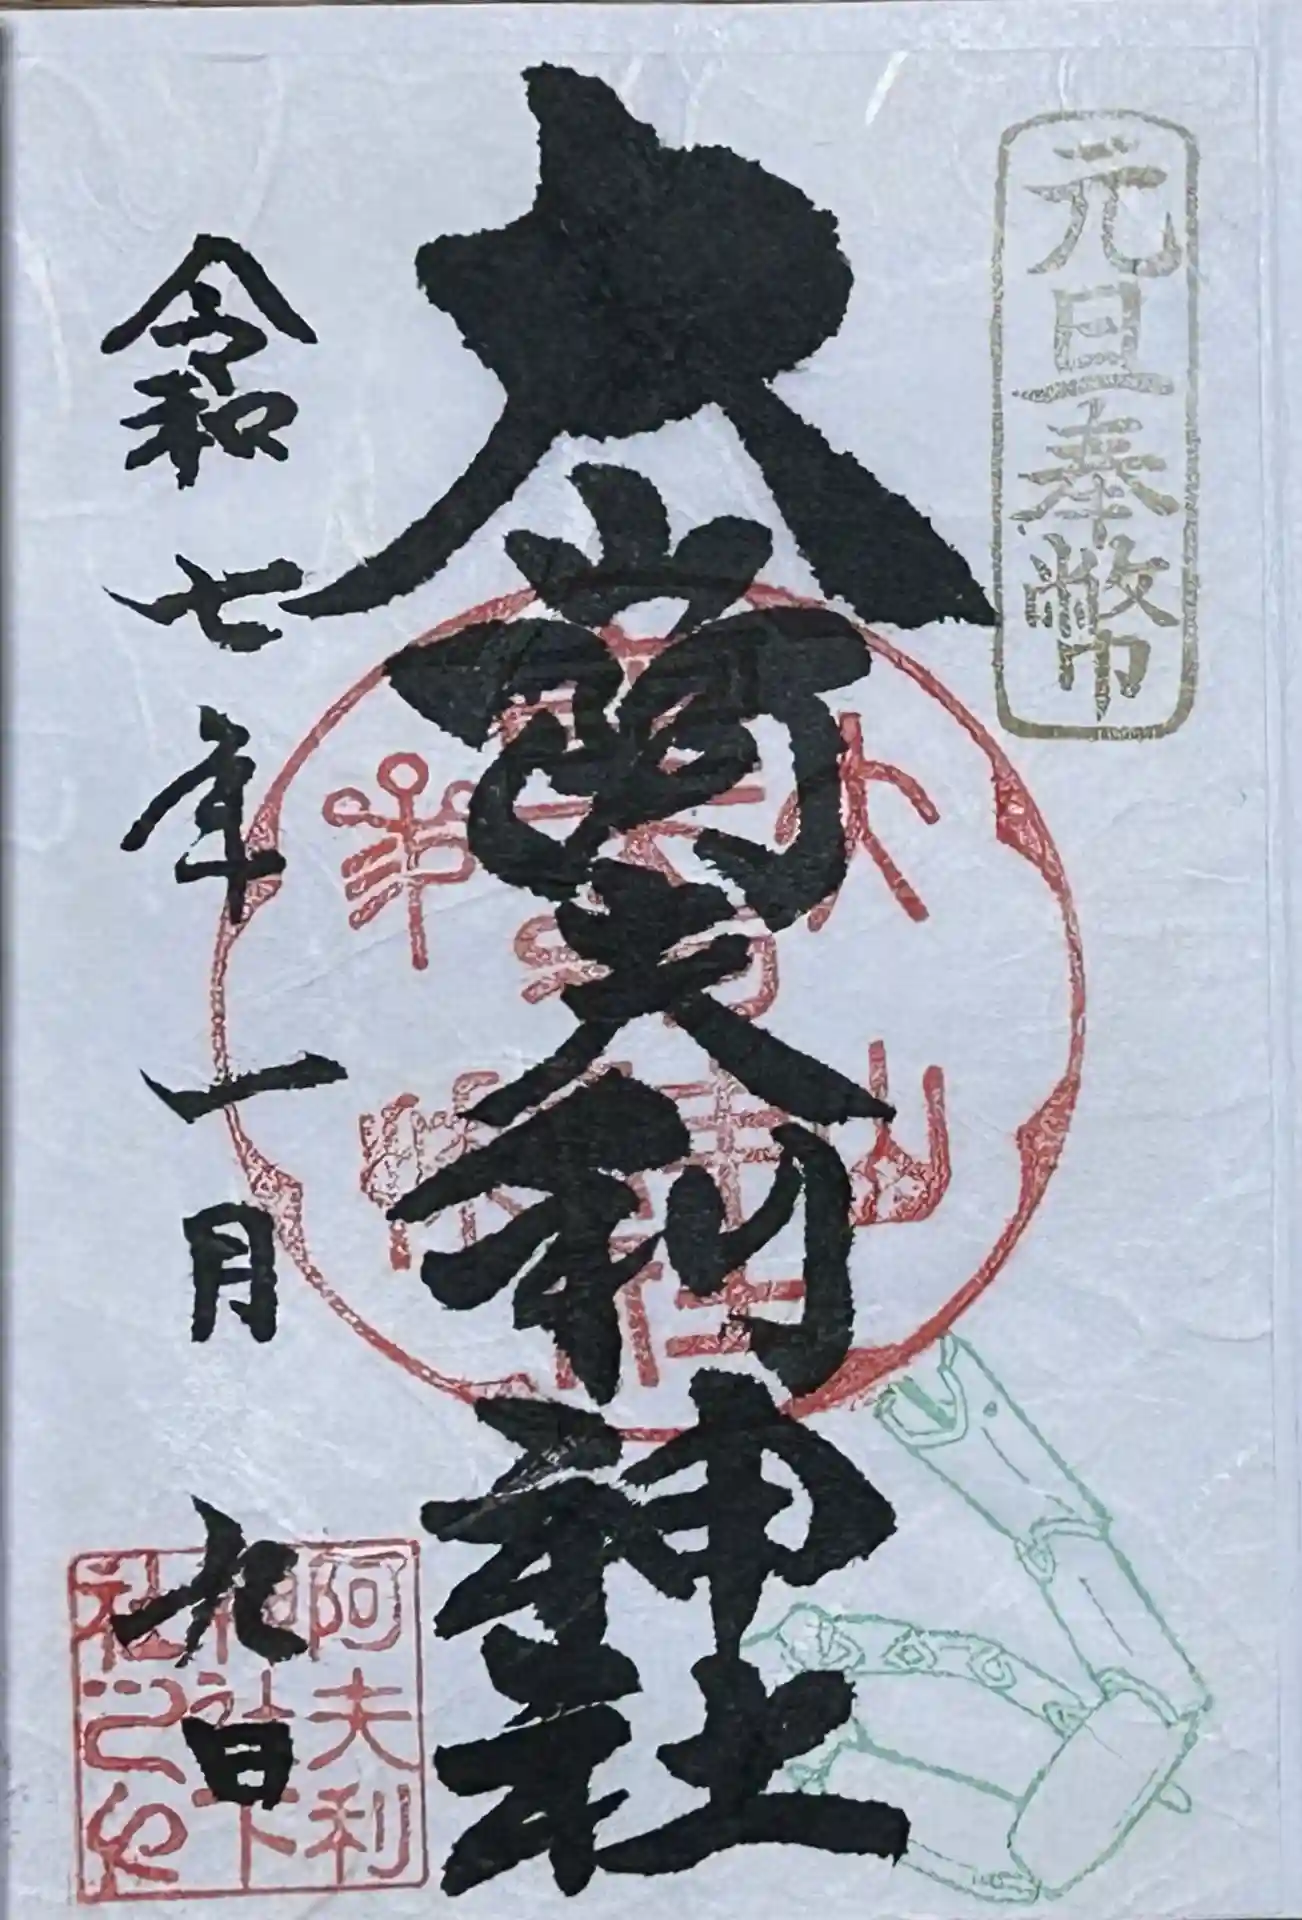 元旦奉幣
大山阿夫利神社
令和七年一月九日
阿夫利
神社下
社之印